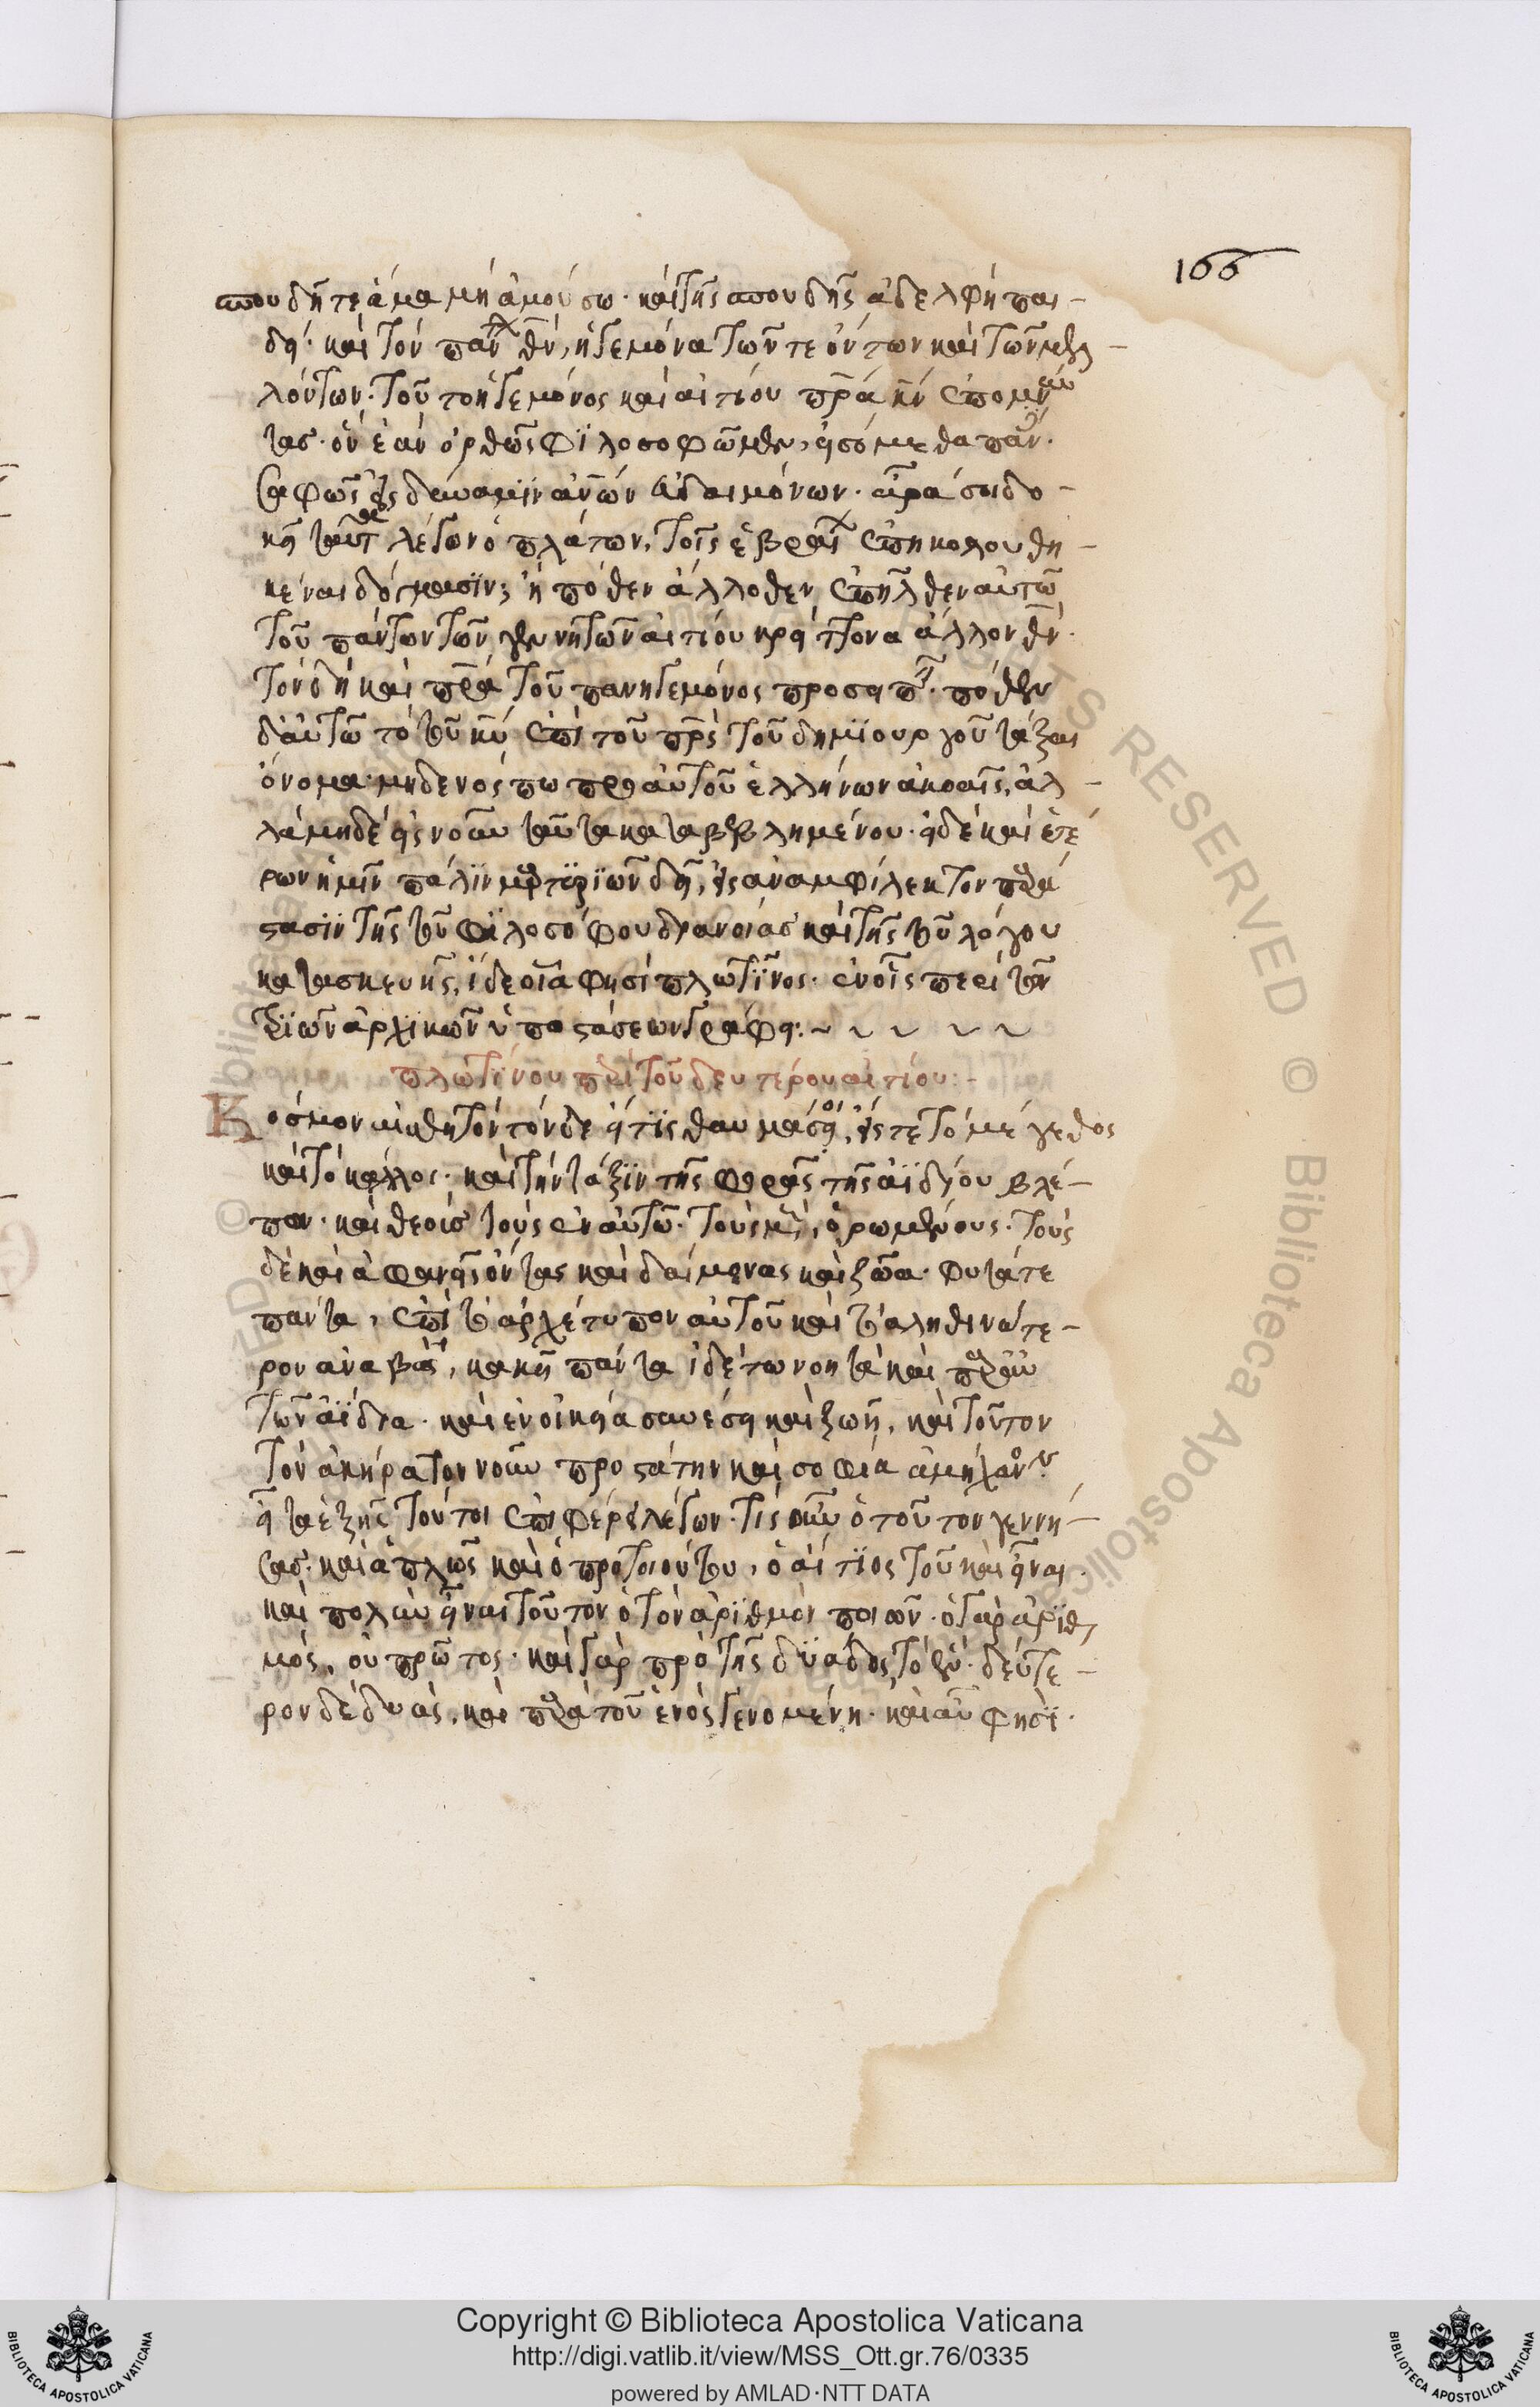 σπουδῆ τε ἅμα μὴ ἀμούσω· καὶ τῆς σπουδῆς ἀδελφῆ παι-
δεί· καὶ τὸν πάντ θν, ἡγεμόνα τῶν τε ὄντων καὶ τῶν μελ-
λόντων· τοῦ τε ἡγεμόνος καὶ αἰτίου πρα κν ἐπομνύν
τας· ὃν ἐὰν ὀρθῶς φιλοσοφῶμεν, εἰσόμεθα πάντ.
σαφῶς εἰς δύναμιν ἀνων εὐδαιμόνων· ἆρά σοι δο-
κεῖ ταῦτ λέγων ὁ πλάτων, τοῖς ἑβραί ἐπηκολουθη-
κέναι δόγμασιν; ἢ πόθεν ἄλλοθεν ἐπῆλθεν αὐτῶ
τοῦ πάντων τῶν γενητῶν αἰτίου κρείττονα ἄλλον θν.
τὸν δὴ καὶ πρα τοῦ πανηγεμόνος προσειπεῖν. πόθεν
δ' αὐτῶ τὸ τοῦ κυ ἐπὶ τοῦ πρς τοῦ δημιουργοῦ τάξαι
ὄνομα· μηδενός πω πρὸ αὐτοῦ ἑλλήνων ἀκοαῖς, ἀλ-
λὰ μηδὲ εἰς νοῦν ταῦτα καταβεβλημένου· εἰ δὲ καὶ ἑτέ
ρων ἡμῖν πάλιν μαρτυριῶν δεῖ, εἰς ἀναμφίλεκτον παρά
στασιν τῆς τοῦ φιλοσόφου διανοίας καὶ τῆς τοῦ λόγου
κατασκευῆς, ἴδε οἷα φησὶ πλωτῖνος· ἐν οἷς περὶ τῶν
τριῶν ἀρχικῶν ὑποστάσεων γράφει:~ ~ ~ ~ ~
πλωτίνου περὶ τοῦ δευτέρου αἰτίου:-
Κόσμον αἰσθητὸν τόνδε εἴ τις θαυμάσει, εἴς τε τὸ μέγεθος
καὶ τὸ κάλλος· καὶ τὴν τάξιν τῆς φορᾶς τῆς ἀϊδίου βλέ-
πων· καὶ θεοὺς τοὺς ἐν αὐτῶ· τοὺς μὲν, ὁρωμένους· τοὺς
δὲ καὶ ἀφανεῖς ὄντας καὶ δαίμονας καὶ ζῶα· φυτά τε
πάντα, ἐπὶ τὸ ἀρχέτυπον αὐτοῦ καὶ τὸ ἀληθινώτε-
ρον ἀναβὰς, κἀκεῖ πάντα ἰδέτω νοητὰ καὶ παρ' αὐ
τῶν ἀΐδια· καὶ ἐν οἰκεία συνέσει καὶ ζωῆ, καὶ τοῦτον
τὸν ἀκήρατον νοῦν προστάτην καὶ σοφία ἀμήχανον.
εἶτα ἑξῆς τούτοι ἐπιφέρει λέγων· τίς οὖν ὁ τοῦτον γεννή-
σας· καὶ ἁπλῶς καὶ ὁ πρὸ τοιούτου, ὁ αἴτιος τοῦ καὶ εἶναι.
καὶ πολὺν εἶναι τοῦτον ὁ τὸν ἀριθμὸν ποιῶν· ὁ γὰρ ἀριθ
μός, οὐ πρῶτος· καὶ γὰρ πρὸ τῆς δυάδος τὸ ἕν· δεύτε-
ρον δὲ δυάς, καὶ παρὰ τοῦ ἑνὸς γενομένη· καὶ αὖ φησὶ·
166
Copyright © Biblioteca Apostolica Vaticana
http://digi.vatlib.it/view/MSS_Ott.gr.76/0335
powered by AMLAD·NTT DATA